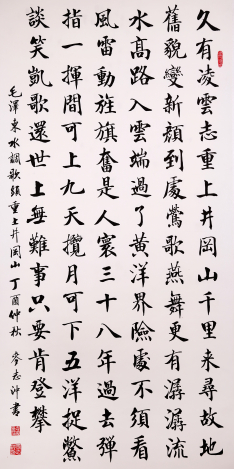 久有凌雲志重上井岡山千里來尋故地
舊貌變新顏到處鶯歌燕舞更有潺潺流
水髙路入雲端過了黃洋界險處不須看
風雷動旌旗奮是人寰三十八年過去彈
指一揮間可上九天攬月可下五洋捉鱉
談笑凱歌還世上無難事只要肯登攀
毛澤東水調歌頭重上井岡山丁酉仲秋 志沖書